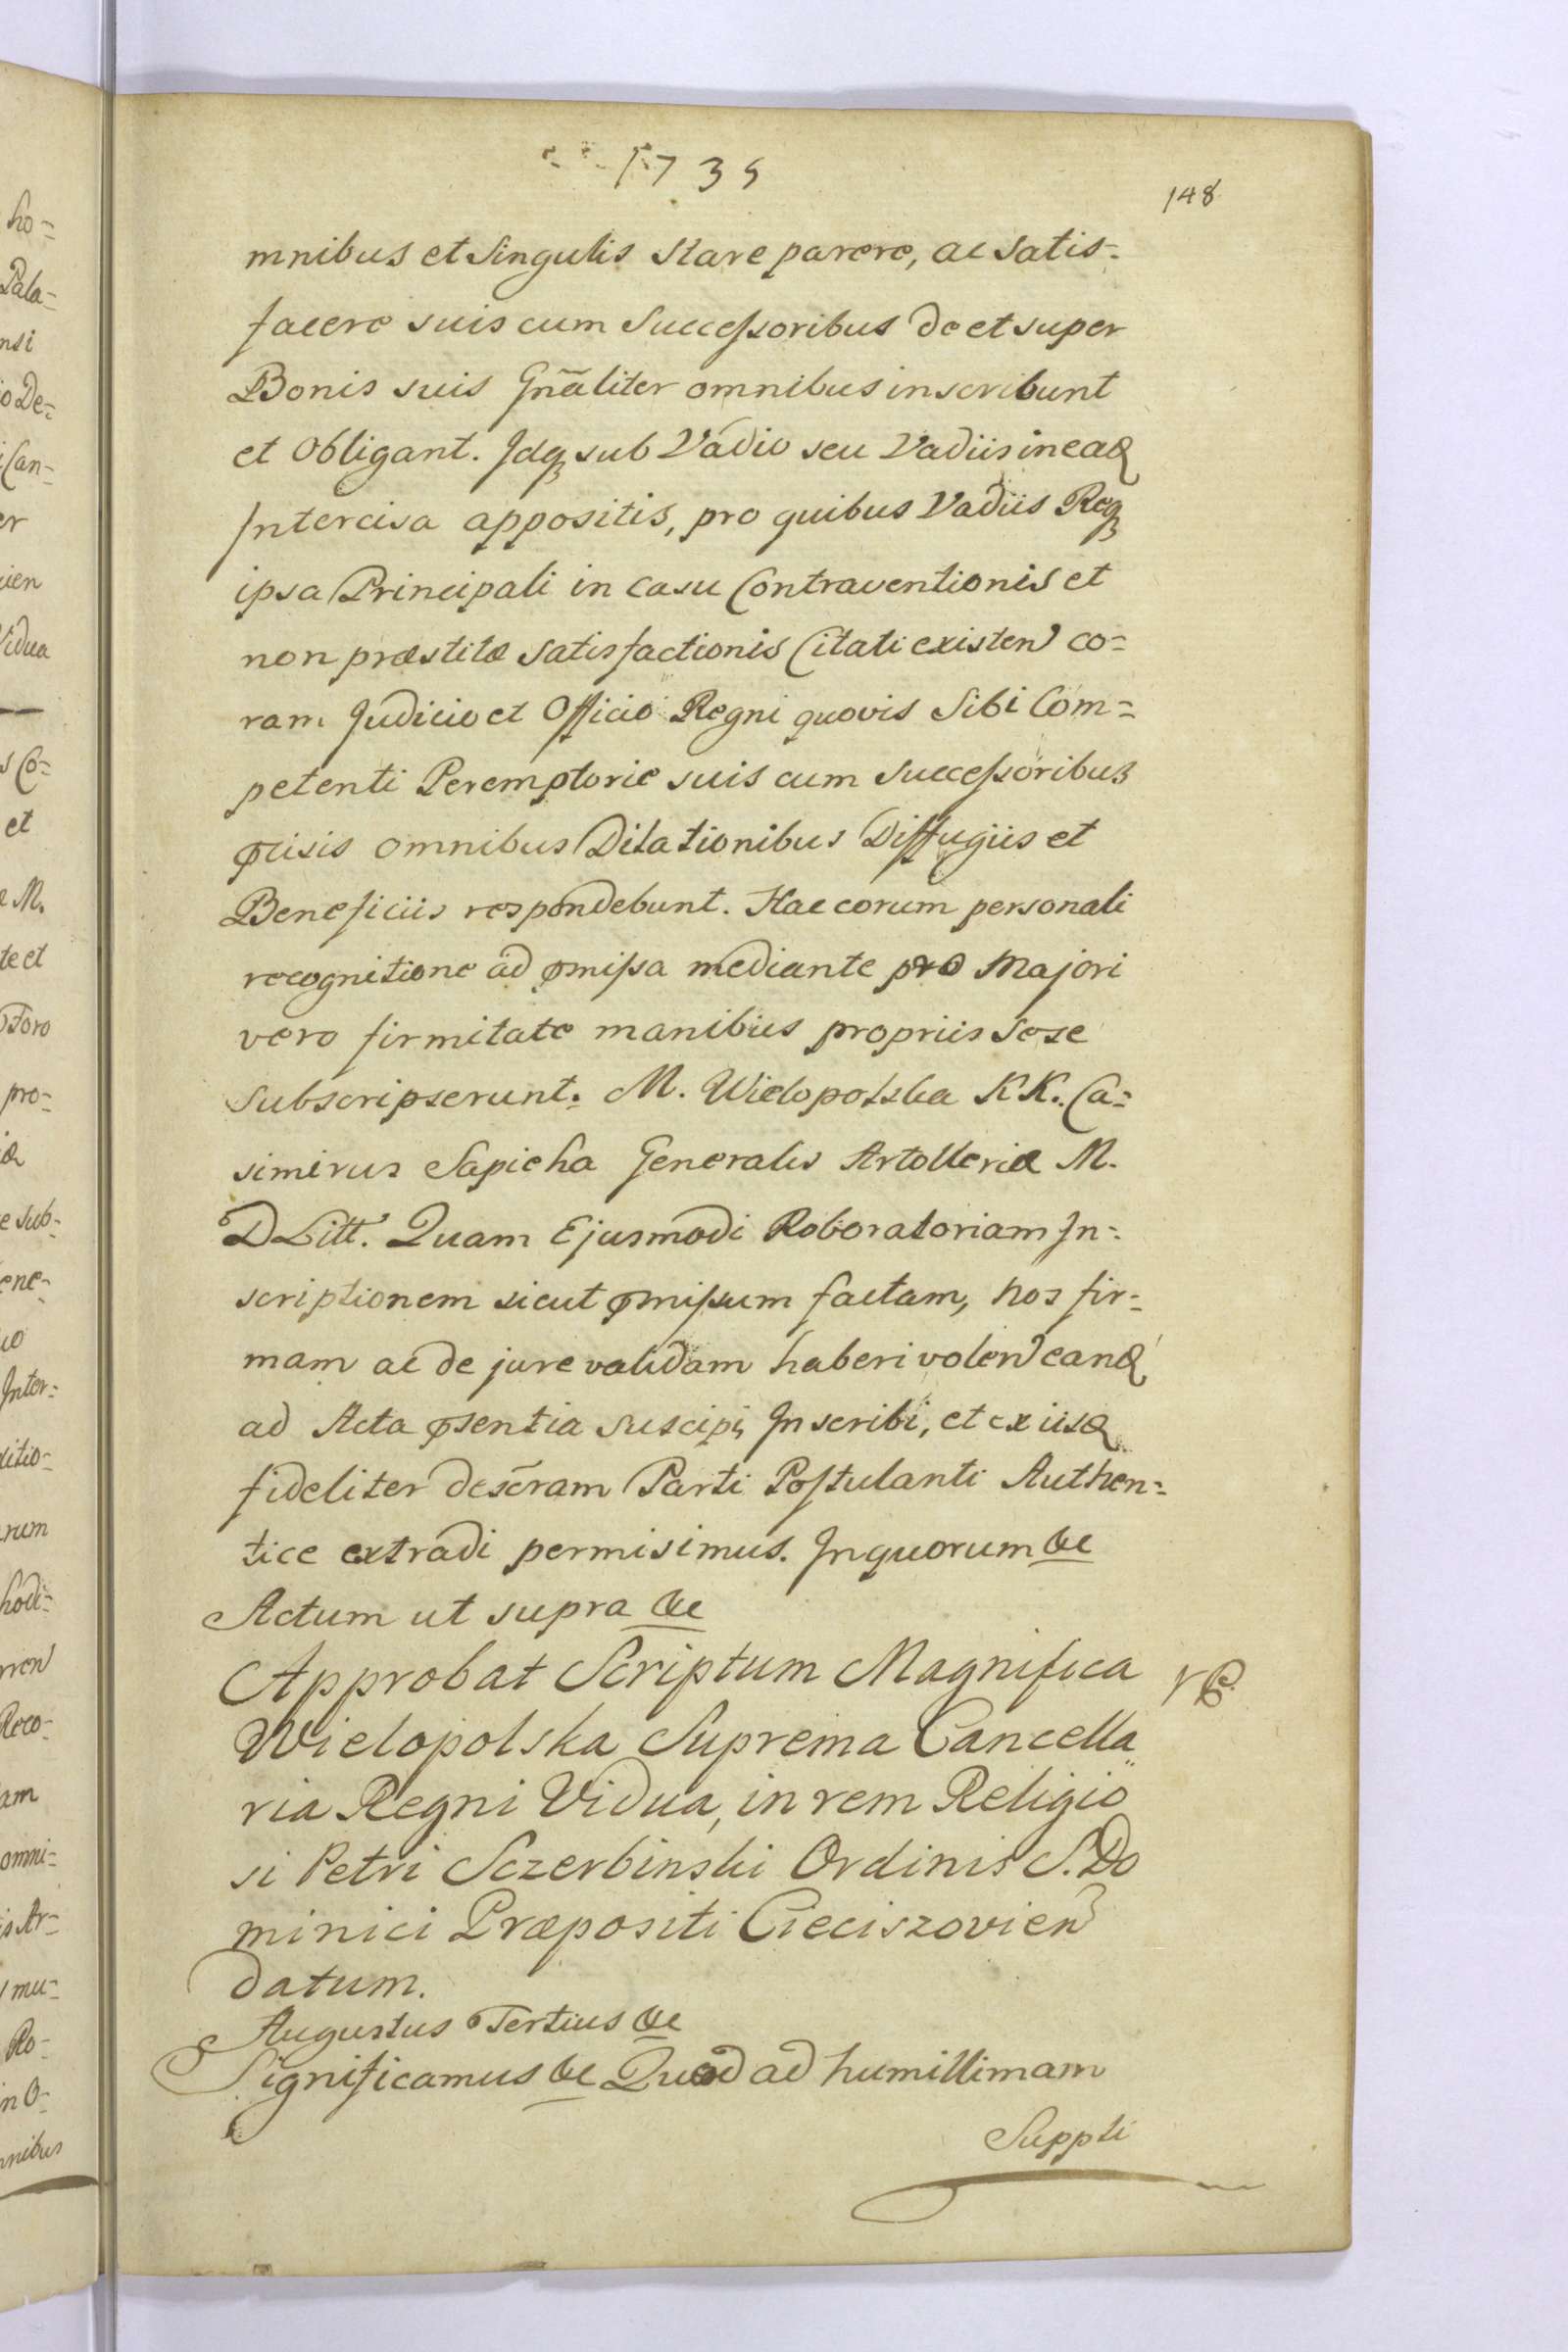 1735
148
mnibus et Singulis stare parere, ac satis=
facere suis cum Successoribus de et super
Bonis suis Gn̄aliter omnibus inscribunt
et Obligant. Idq, sub Vadio seu Vadiis in eaq
Intercisa appositis, pro quibus Vadiis Req
ipsa Principali in casu Contraventionis et
non præstitæ satisfactionis Citati existen co=
ram Judicio et Officio Regni quovis Sibi Com=
petenti Peremptorie suis cum Successoribus
omnibus Dilationibus Diffugiis et
Beneficiis respondebunt. Hac eorum personali
recognitione ad pmissa mediante pro Majori
vero firmitate manibus propriis sese
subscripserunt. M. Wielopolska KK. Ca=
simirus Sapieha Generalis Artolleriæ M.
D Litt. Quam Ejusmodi Roboratoriam In=
scriptionem sicut pmissum factam, nos fir=
mam ac de jure validam haberi volen eanq
ad Acta psentia suscipi, Inscribi, et ex iisq
fideliter desc̄ram Parti Postulanti Authen=
tice extradi permisimus. In quorum &c
Actum ut supra &c
Approbat Scriptum Magnifica
Wielopolska Suprema Cancella
ria Regni Vidua, in rem Religio
si Petri Sczerbinski Ordinis S. Do
minici Præpositi Cieciszovien
datum.
Augustus Tertius &c
Significamus &c Quod ad humillimam
Suppli